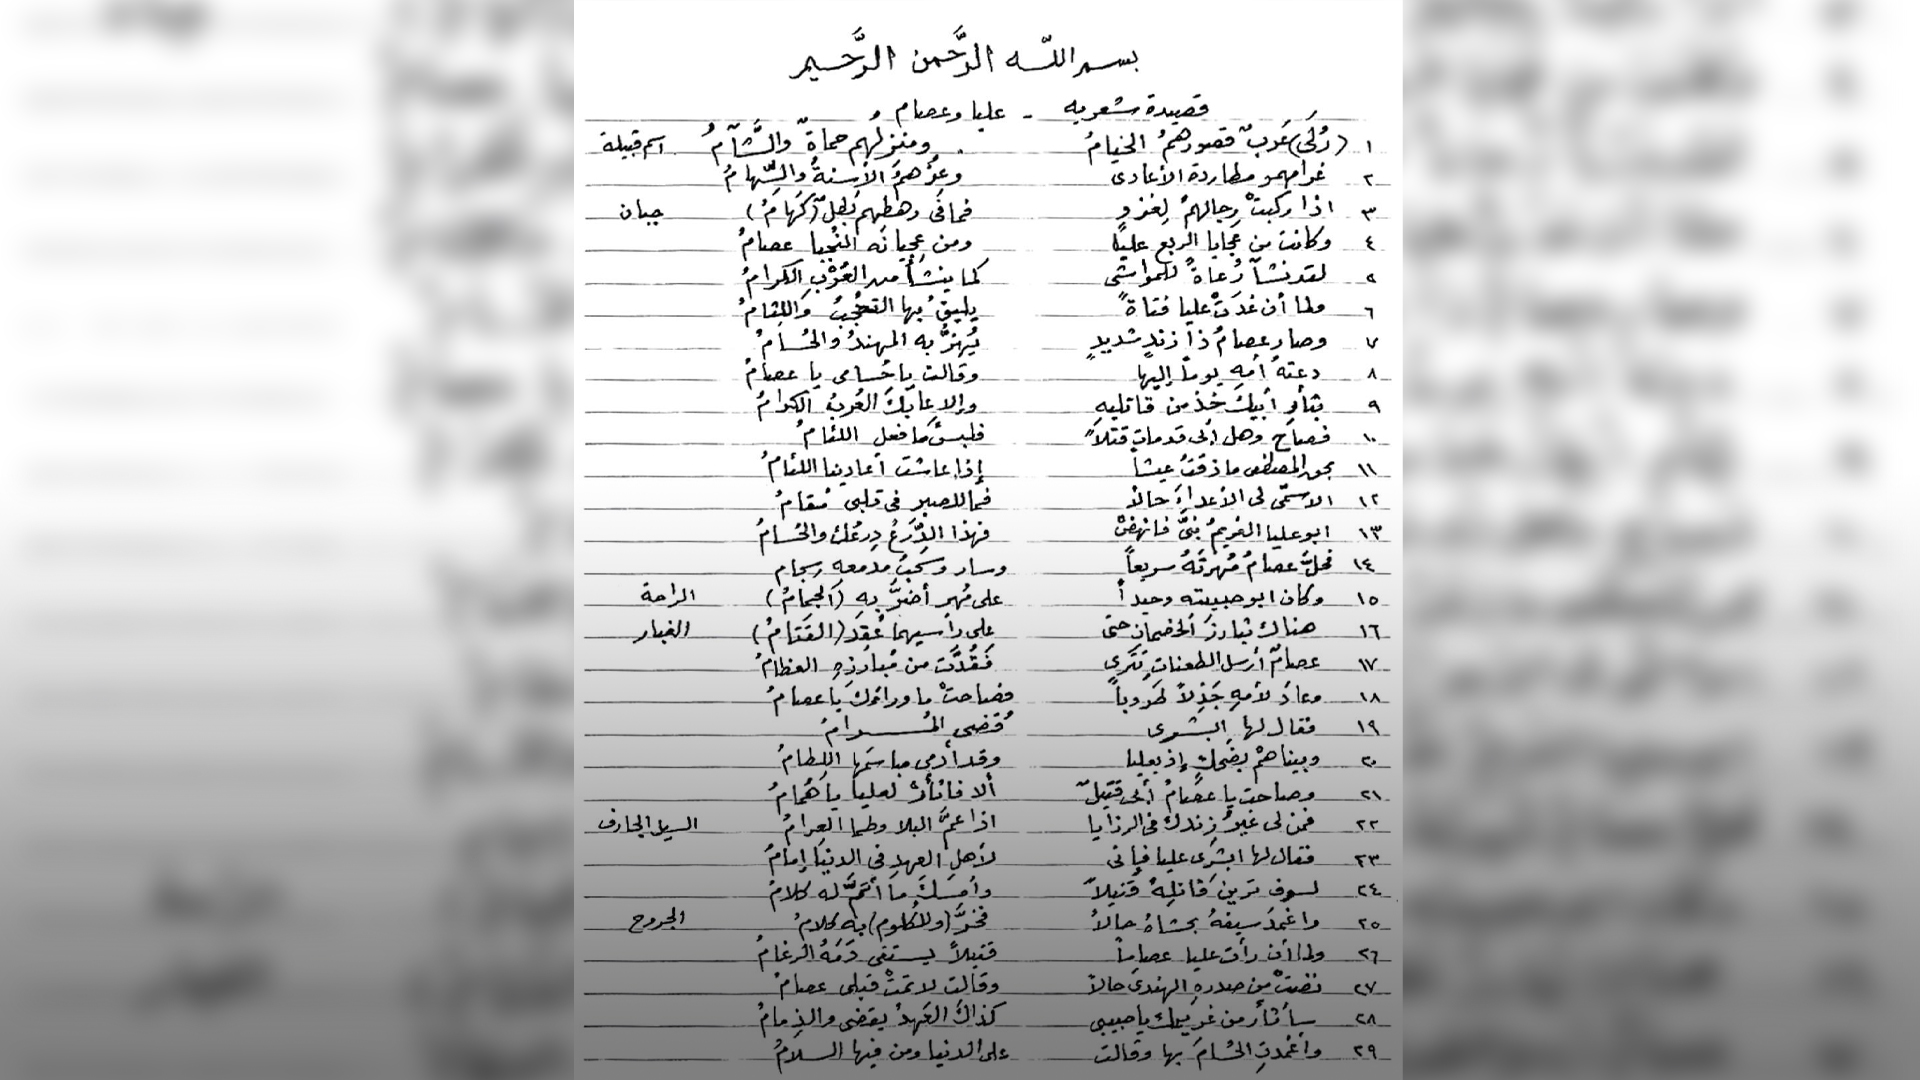 بسم اللّه الرَّحمن الرَّحيم
قصيدة شعريه - عليا وعصام
١ (رُلَى) عَربٌ قصورهمُ الخيامُ ومنزلُهم حماةٌ والشَّآمُ اسم قبيلة
٢ غرامهمو مطاردة الأعادى وعزُهمُ الأسنةُ والسِّهامُ
٣ اذا ركبتْ رجالهمُ لغزوٍ فما فى رهطهم بطلٌ (كَهَامُ) جبان
٤ وكانت من عجايا الربع عليا ومن عجيانه النجبا عصامُ
٥ لقد نشآ رُعاةً للمواشى كما ينشأ من العُرْبِ الكرامُ
٦ ولما أن غدَتْ عليا فتاةً يليقُ بها التحْجبُ واللثامُ
٧ وصار عصامُ ذا زندٍ شديدٍ يُهزُّ به المهندُ والحُسامُ
٨ دعتهُ أمهِ يوماً إليها وقالت يا حُسامى يا عصامُ
٩ بثأرِ أبيكَ خذ من قاتليهِ وإلا عابكَ العُربُ الكرامُ
١٠ فصاح وهل أبى قد مات قتلاً فلبئس ما فعل اللئامُ
١١ بحق المصطفى ما ذقتُ عيشاً إذا عاشت أعادينا اللئامُ
١٢ الا سمّى لى الأعداءَ حالاً فما للصبر فى قلبى مُقامُ
١٣ ابو عليا الغريمُ بنىَّ فانهضْ فهذا الدِّرَعُ دِرعُك والحُسامُ
١٤ فحلَّ عصامُ مُهرتَهُ سريعاً وسار وسحبُ مدمعه سجام
١٥ وكان ابو حبيبته وحيداً على مُهرٍ أضرَّ بهِ (الجمامُ) الراحة
١٦ هناك تبارزَ الخصمانِ حتى على رأسيهما عُقِدَ (القَتَامُ) الغبار
١٧ عصامٌ أرسل الطعناتِ تترى فَقُدَّت من مُبارزهِ العظامُ
١٨ وعادَ لأمهِ جَذِلاً طروباً فصاحتْ ما وراءك يا عصامُ
١٩ فقال لها البشرى قُضى المُرامُ
٢٠ وبيناهمْ بضحكٍ إذ بعليا وقد أدمى مباسمَها اللطامُ
٢١ وصاحت يا عصامُ أبى قتيلٌ ألا فاثأرْ لعليا يا هُمامُ
٢٢ فمن لى غيرُ زندك فى الرزايا اذا عمَّ البلا وطما العِرامُ السيل الجارف
٢٣ فقال لها ابشرى عليا فإنى لأهلِ العهدِ فى الدنيا إمامُ
٢٤ لسوف ترين قاتلِهُ قتيلاً وأمسَكَ ما أتمَّ له كلامُ
٢٥ واغمدَ سيفهُ بحشاهُ حالاً فخرَّ (وللكلوم) به كلامُ الجروح
٢٦ ولما أن رأت عليا عصاماً قتيلاً يستقى دَمَهُ الرغامُ
٢٧ نضتْ من صدرهِ الهندى حالاً وقالت لا تمتْ قبلى عصامُ
٢٨ سأثأر من غريمك يا حبيبى كذاكَ العَهدُ يقضى والذِمامُ
٢٩ واغمدتِ الحُسامَ بها وقالت على الدنيا ومن فيها السلامُ